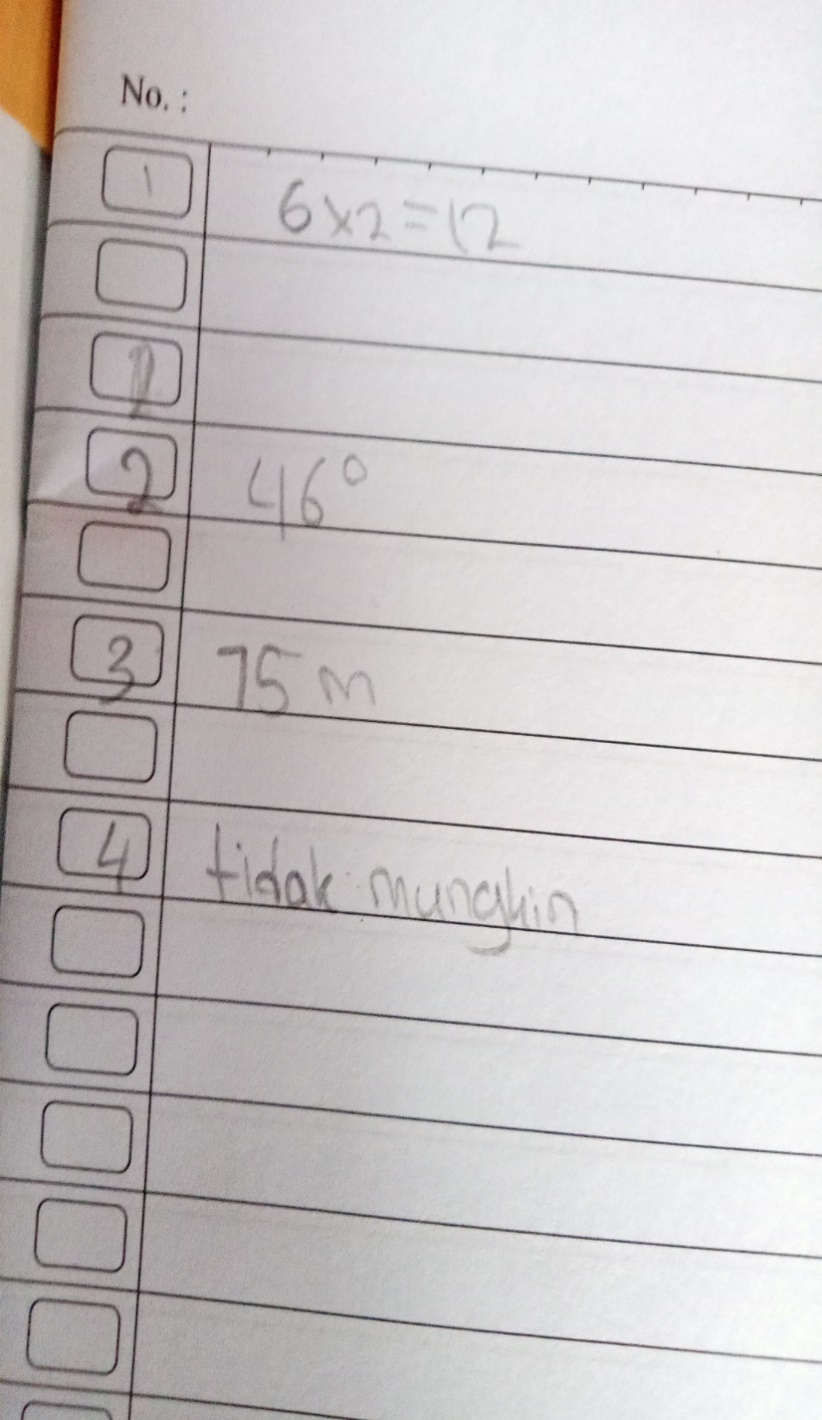 No. :
1 6x2=12
2 46°
3 75 m
4 tidak mungkin